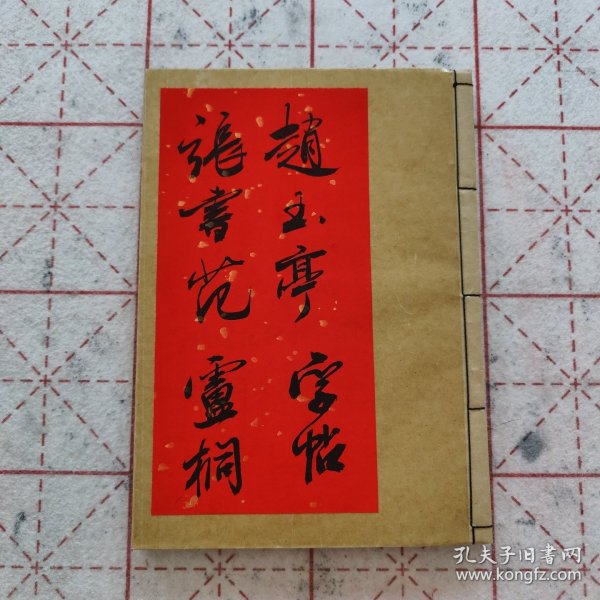 趙玉亭 字帖
張書范 盧桐
孔夫子旧書网
www.kongfz.com